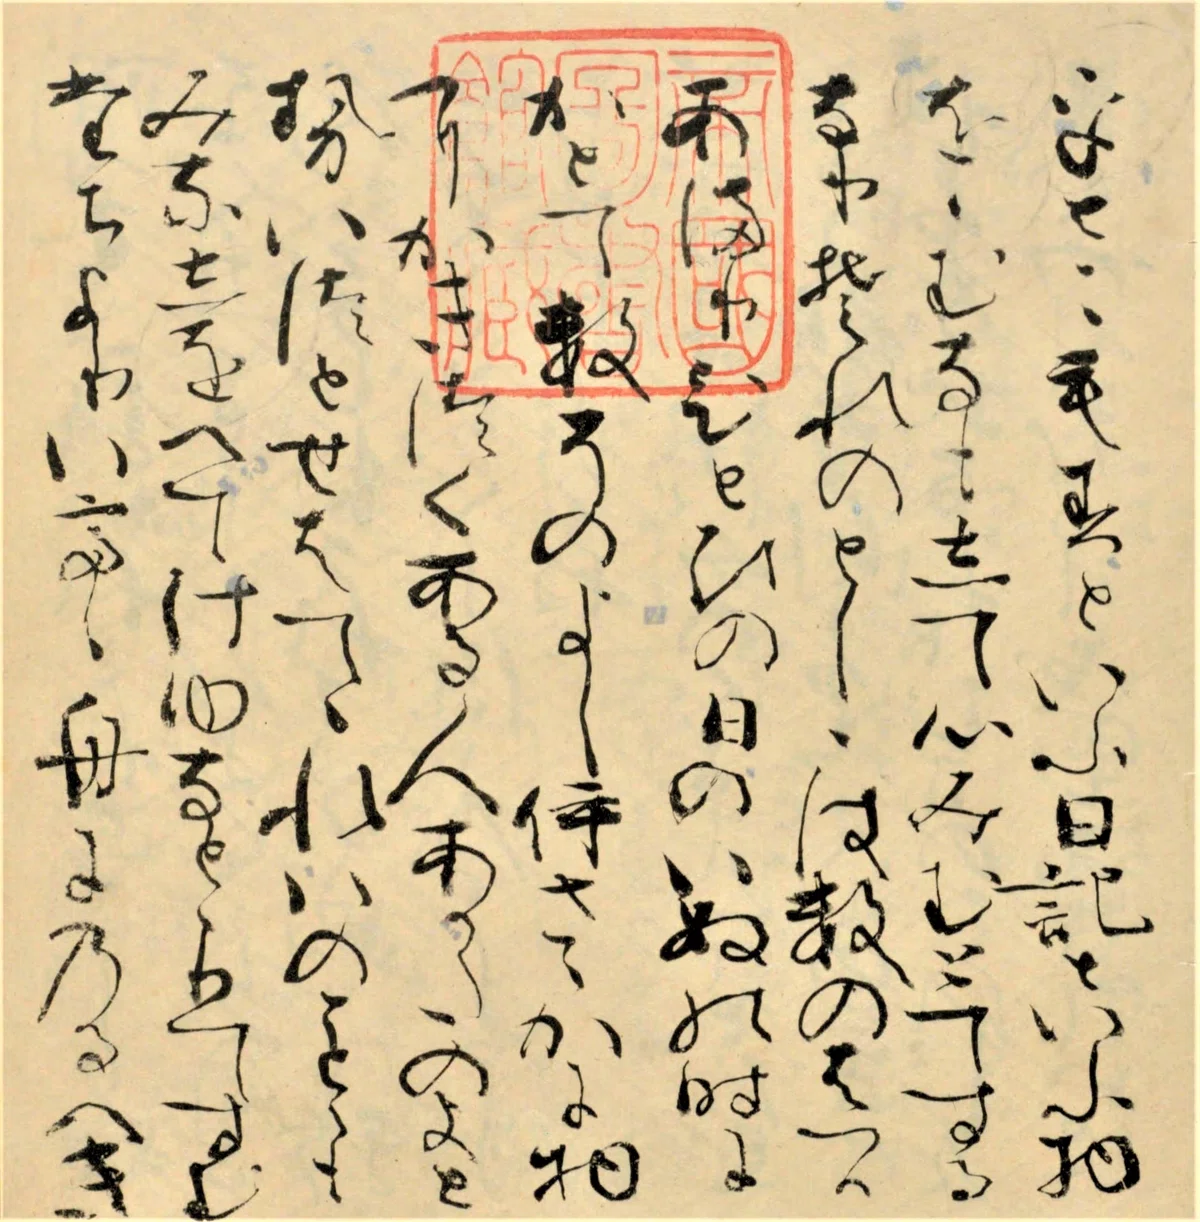 をとこもすといふ日記といふ物
をゝむなもして心みむとてする
なりそれのとしゝはすのはつ
かあまりひとひの日のいぬの時に
かとてすそのよしいさゝかに物
にかきつくある人あかたのよと
せいつとせはてゝれいのことゝも
みなしをへてけゆなとゝりてすむ
たちよりいてゝ舟にのるへき
帝國
圖書
館藏